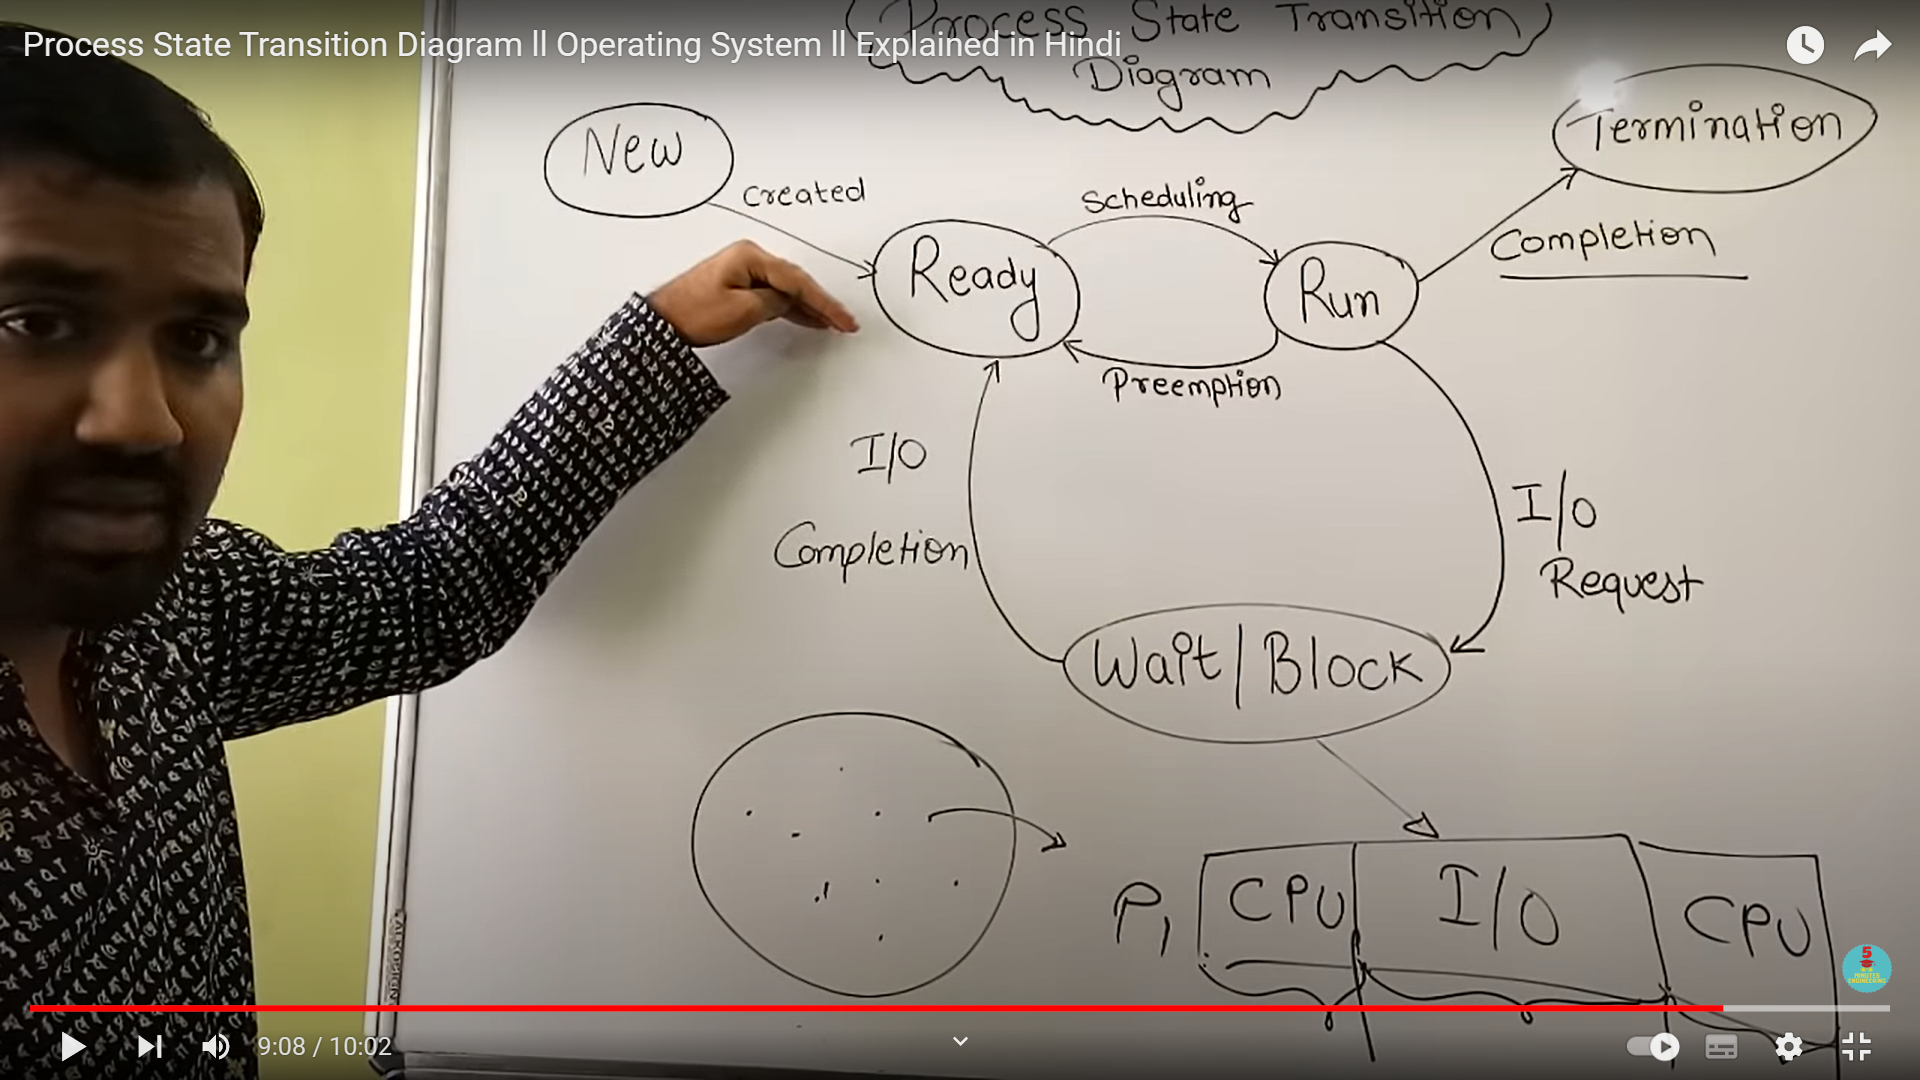 Process State Transition Diagram ll Operating System ll Explained in Hindi
Process State Transition
Diagram
New
created
Ready
Scheduling
Run
Termination
Completion
Preemption
I/O
Completion
I/O
Request
Wait/Block
P1
CPU
I/O
CPU
5
MINUTES
ENGINEERING
9:08 / 10:02